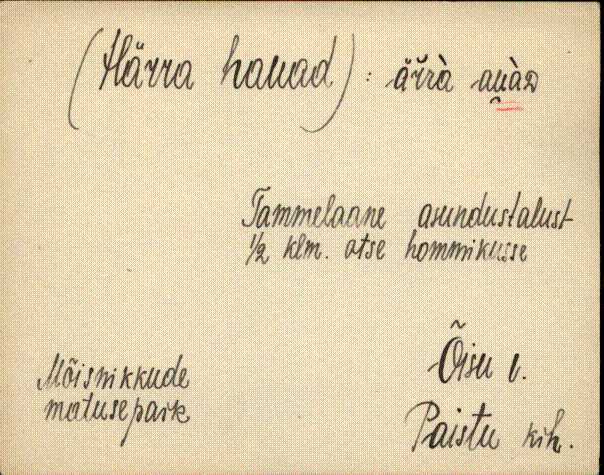 (Härra hauad) : ärrà auàᴅ
Tammelaane asundustalust
1/2 klm. otse hommikusse
Mõisnikkude
matusepaik
Õisu v.
Paistu kih.